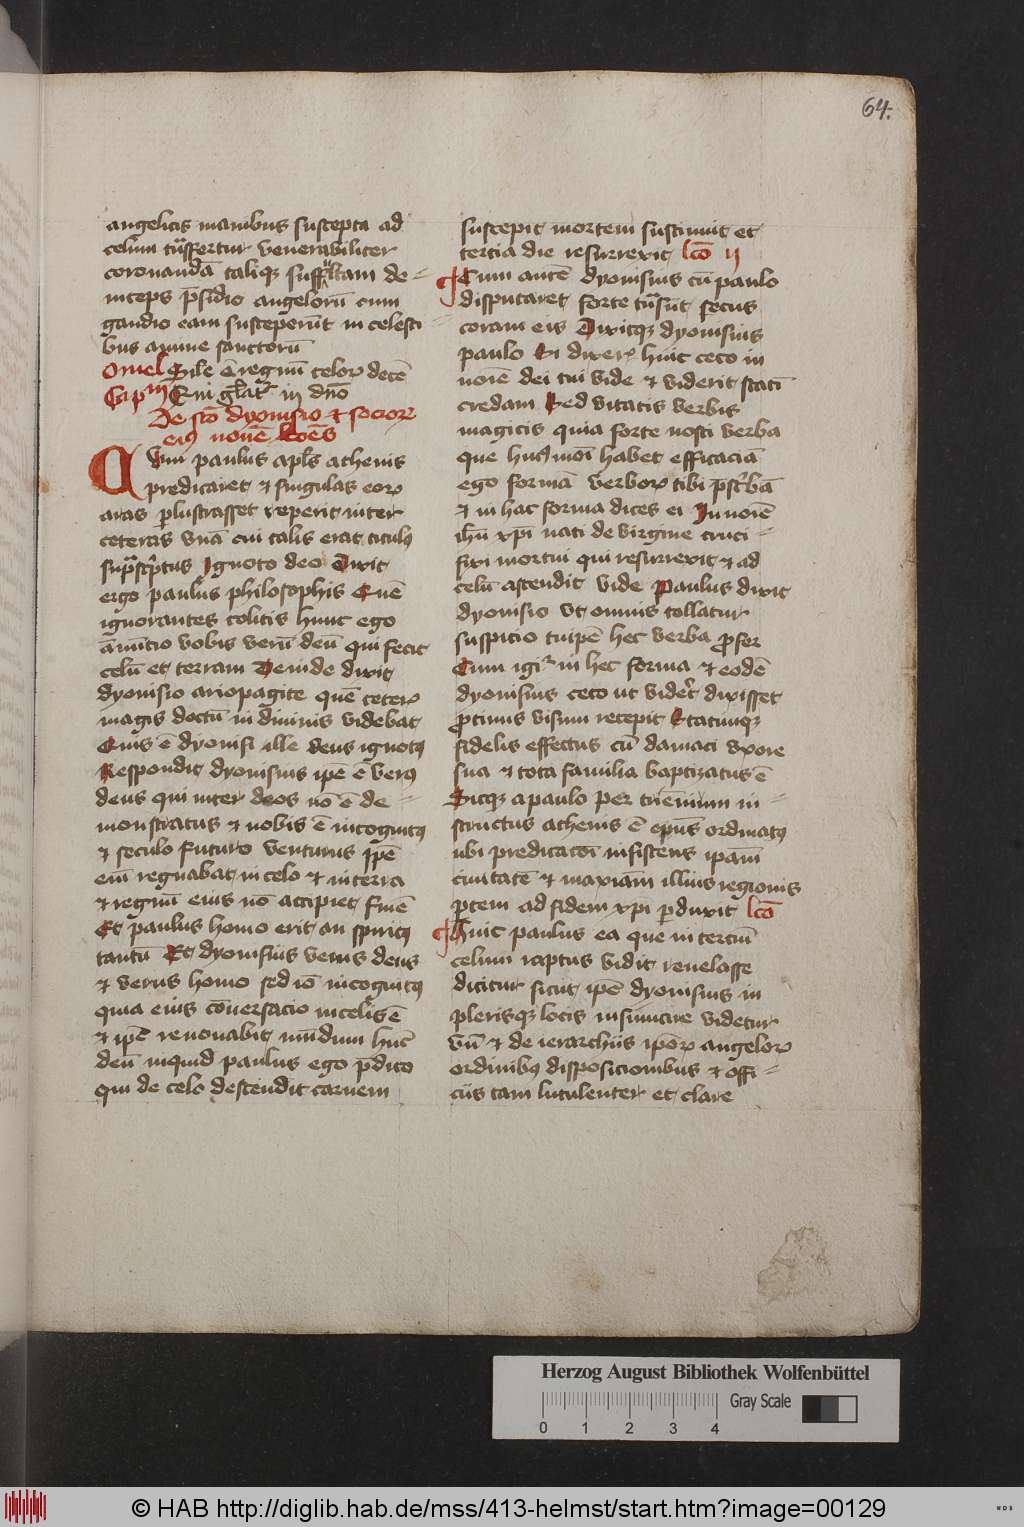 64.
angelicis manibus suscepta ad
celum tͣnsfertur venerabiliter
coronandā taliqꝫ suffultam de=
inceps p̄sidio angelorū cum
gaudio eam susceperūt in celesti
bus anime sanctorū
Omel Sile ē regnū celoꝝ decē
Capᵐ Qui gl̄atᷣ in dn̄o
De scō dyonisio et socioꝝ
eiꝰ nouē lc̄oēs
Cum paulus apl̄s athenis
predicaret et singulas eoꝝ
aras ꝑlustrasset reperit inter
ceteras vnā cui talis erat titulꝰ
sup̄scͥptus Ignoto deo Dixit
ergo paulus philosophis Quē
ignorantes colitis hunc ego
ānūctio vobis verū deū qui fecit
celū et terram Deinde dixit
dyonisio ariopagite quē ceteꝝ
magis doctū in diuinis videbat
Quis ē dyonisi ille deus ignotꝰ
Respondit dyonisius ip̄e ē verꝰ
deus qui inter deos nō ē de=
monstratus et nobis ē incognitꝰ
et seculo futuro venturus Ip̄e
eni regnabat in celo et in terra
et regnū eius nō accipiet finē
Et paulus homo erit an spiritꝰ
tantū Et dyonisius verus deus
et verus homo sed iō incognitꝰ
quia eius cōuersacio in celis ē
et ip̄e renouabit mūdum hūc
deū inquid paulus ego p̄dico
qui de celo descendit carnem
suscepit mortem sustinuit et
tertia die resurrexit lc̄o ij
Cum autē dyonisius cū paulo
disputaret forte tͣnsūt secus
coram eis Dixitqꝫ dyonisius
paulo Si dixeꝝ huic ceco in
noīe dei tui vide et viderit statī
credam Sed vitatis verbis
magicis quia forte nosti verba
que huiꝰmōi habet efficaciā
ego formā verboꝝ tibi p̄scͥbā
et in hac forma dices ei In noīe
ih̄u xp̄i nati de virgine cruci=
fixi mortui qui resurrexit et ad
celū ascendit vide Paulus dixit
dyonisio vt omnis tollatur
suspitio tuip̄e hec verba ꝓfer
Cum igiᷣ in hec forma et eodē
dyonisius ceco ut videret dixisset
ꝓtinus visum recepit Statimqꝫ
fidelis effectus cū damaci vxore
sua et tota familia baptizatus ē
Sicqꝫ a paulo per triēnium in=
structus athenis ē ep̄us ordinatꝰ
ubi predicacōi insistens ipām
ciuitatē et maxiām illius regionis
ꝑtem ad fidem xp̄i ꝑduxit lc̄o
Huic paulus ea que in terciū
celum raptus vidit reuelasse
dicitur sicut ip̄e dyonisius in
plerisqꝫ locis insinuare videtur
vn̄ et de ierarchiis ipoꝝ angeloꝝ
ordinibꝰ disposicionibus et offi=
ciis tam luculenter et clare
Herzog August Bibliothek Wolfenbüttel
Gray Scale
0 1 2 3 4
© HAB http://diglib.hab.de/mss/413-helmst/start.htm?image=00129